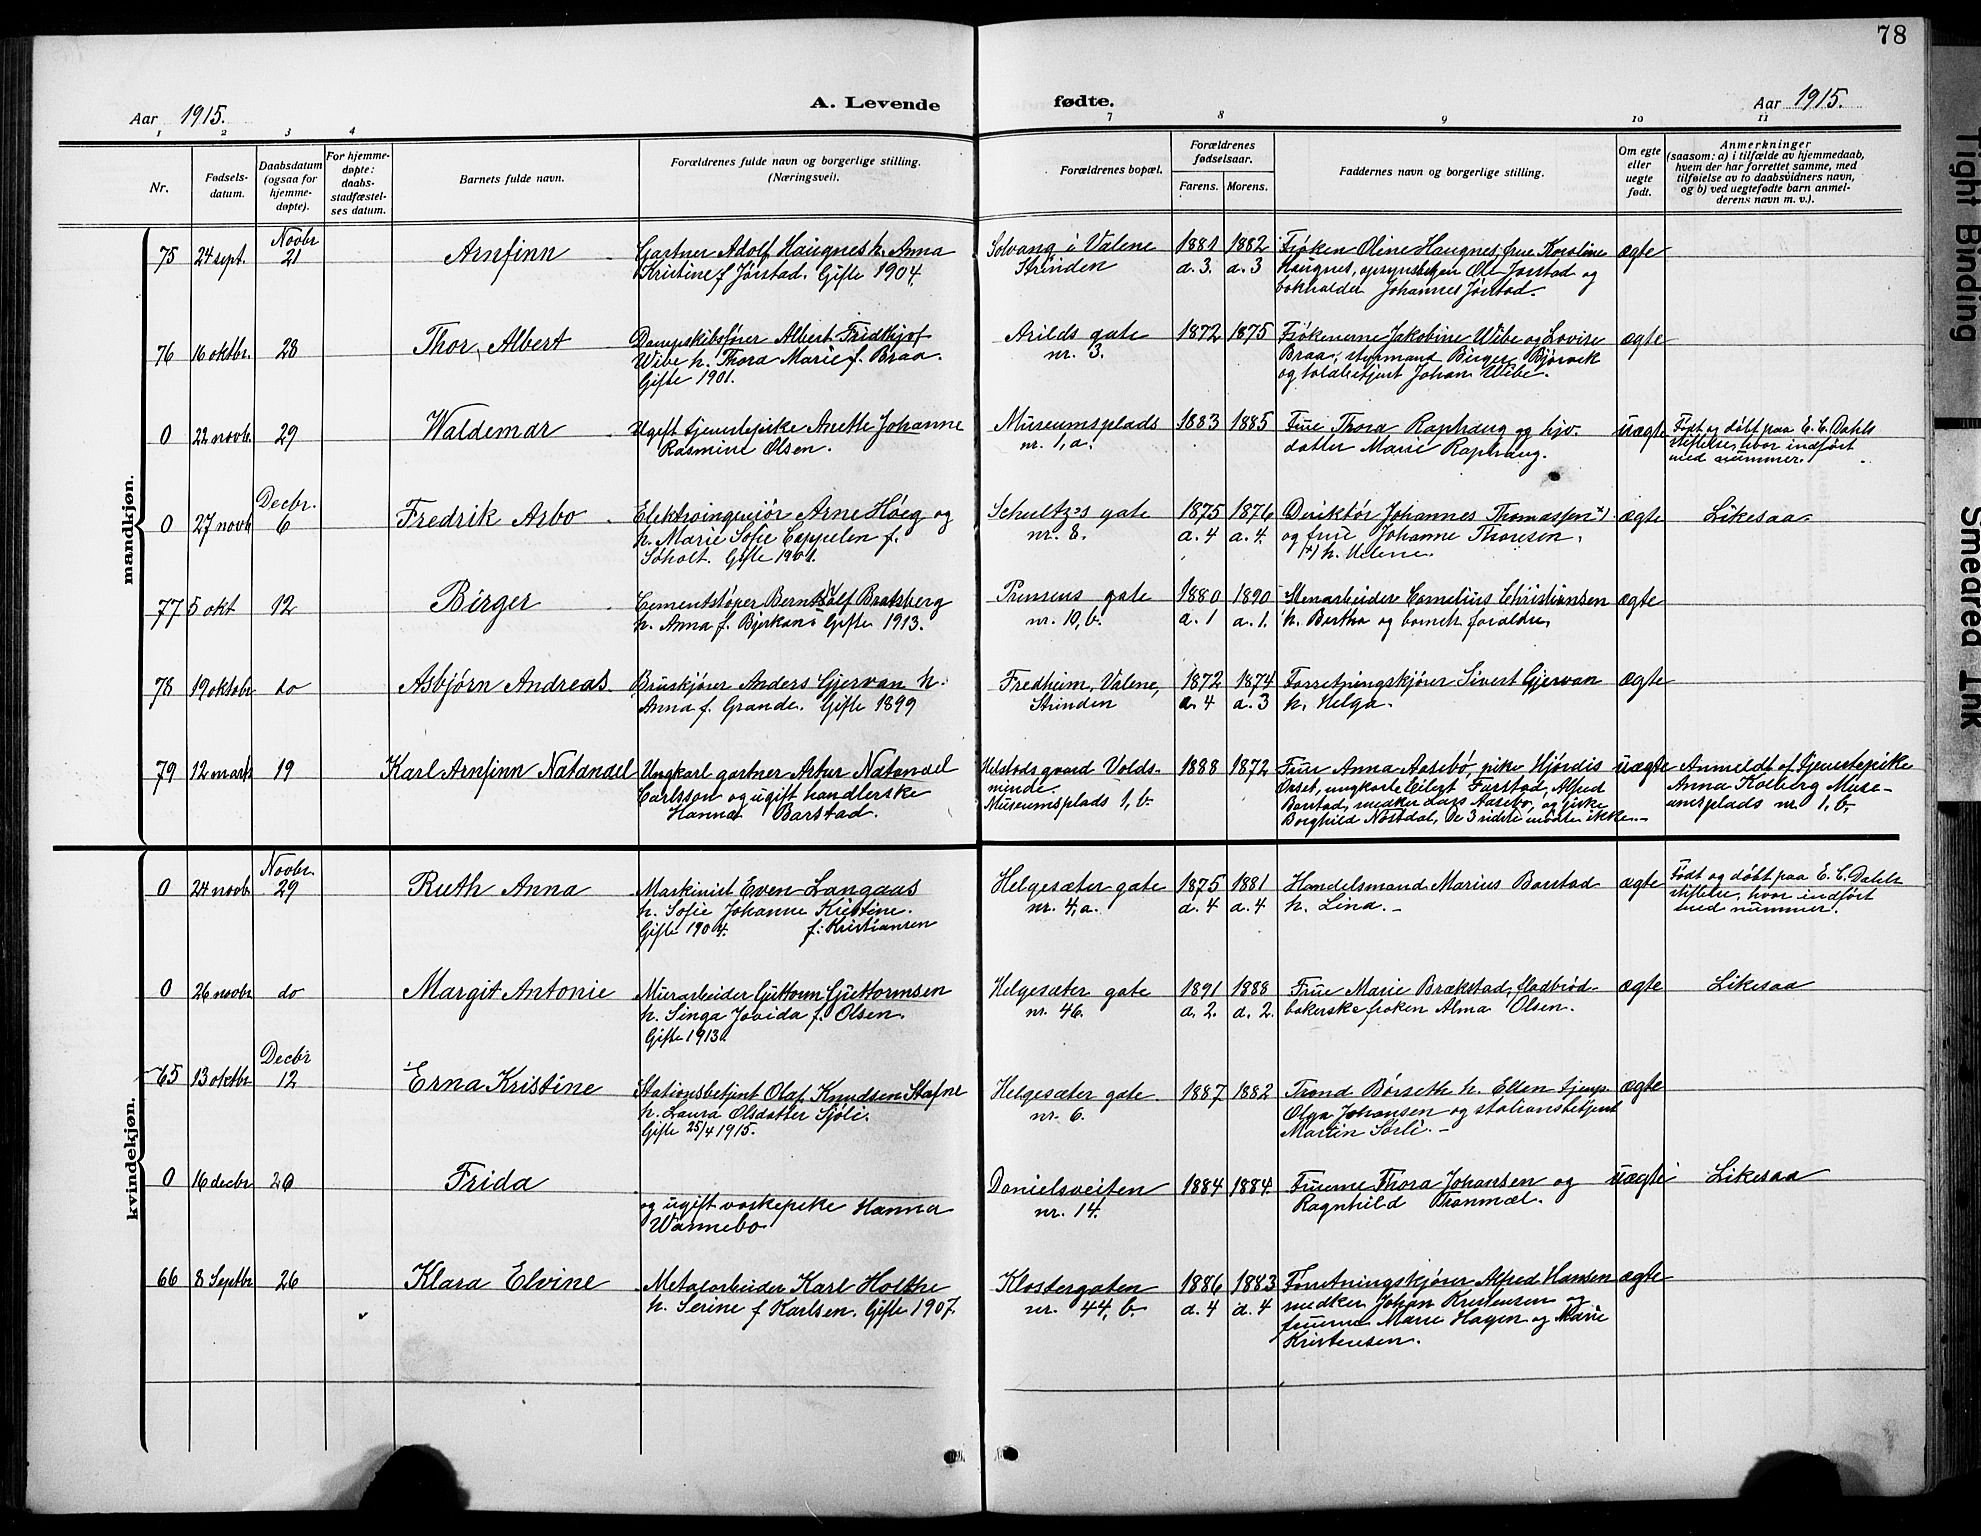 78
Aar 1915.
A. Levende
fødte.
Aar 1915.
1 2 3 4
7 8 9 10 11
Nr.
Fødsels-
datum.
Daabsdatum
(ogsaa for
hjemme-
døpte).
For hjemme-
døpte:
daabs-
stadfæstel-
ses datum.
Barnets fulde navn.
Forældrenes fulde navn og borgerlige stilling.
(Næringsvei).
Forældrenes bopæl.
Forældrenes
fødselsaar.
Farens. Morens.
Faddernes navn og borgerlige stilling.
Om egte
eller
uegte
født.
Anmerkninger
(saasom: a) i tilfælde av hjemmedaab,
hvem der har forrettet samme, med
tilføielse av to daabsvidners navn,
og b) ved uegtefødte barn anmel-
derens navn m. v.).
mandkjøn.
75 24 sept. Novbr. 21 Arnfinn
Gartner Adolf Haugnes h. Anna
Kristine f. Jørstad. Gifte 1904.
Solvang i Valene
Strinden
1881 1882
a. 3. a. 3
Frøken Oline Haugnes, frue Karoline
Haugnes, opsynsbetjen Ole Jørstad og
bokholder Johannes Jørstad.
ægte
76 16 oktbr. 28 Thor, Albert
Dampskibsfører Albert Fridthjof
Wibe h. Thora Marie f. Braa.
Gifte 1901.
Arilds gate
nr. 3.
1872 1875
Frøkenerne Jakobine Wibe og Lovise
Braa, styrmand Birger Bjørvik
og toldbetjent Johan Wibe.
ægte
0 22 novb. 29 Waldemar
Ugift tjenestepike Anette Johanne
Rasmine Olsen.
Museumsplads
nr. 1, a.
1883 1885
Frue Thora Raphaug og hjv.
datter Marie Raphaug.
uægte
Født og døbt paa E. C. Dahls
stiftelse, hvor indført
med nummer.
0 27 novb. Decbr. 6 Fredrik Arbo
Elektroingeniør Arne Høeg og
h. Marie Sofie Cappelen f.
Søholt. Gifte 1901.
Schultz's gate
nr. 8.
1875 1876
a. 4 a. 4.
Direktør Johannes Thomassen x)
og frue Johanne Thoresen.
x) h. Helene.
ægte
Likesaa
77 5 okt 12 Birger
Cementstøper Bernt Adolf Bratsberg
h. Anna f. Bjerkan. Gifte 1913.
Prinsens gate
nr. 10, b.
1880 1890
a. 1 a. 1.
Stenarbeider Cornelius Christiansen
h. Bertha og barnets forældre,
ægte
78 19 oktobr do Asbjørn Andreas
Bruskjører Anders Gjervan h.
Anna f. Grande. Gifte 1899
Fredheim, Valene,
Strinden
1872 1874
a. 4 a. 3
Forretningskjører Sivert Gjervan
h. Helga.
ægte
79 12 mars 19 Karl Arnfinn Natanael
Ungkarl gartner Artur Natanael
Carlsson og ugift handlerske
Hanna Barstad.
Ustadsgaard Volds-
minde.
Museumsplads 1, b.
1888 1872
Frue Anna Aasebø, pike Hjørdis
Orset, ungkarle Eilert Furstad, Alfred
Barstad, medker Lars Aasebø, og pike
Borghild Nøstdal, de 3 sidste mødte ikke.
uægte
Anmeldt af tjenestepike
Anna Kolberg Muse-
umsplads nr. 1, b.
kvindekjøn.
0 24 novb Novbr. 29 Ruth Anna
Maskinist Even Langaas
h. Sofie Johanne Kristine.
Gifte 1904. f. Kristiansen
Helgesæter gate
nr. 4, a.
1875 1881
a. 4 a. 4
Handelsmand Marius Barstad
h. Lina.
ægte
Født og døbt paa E. C. Dahls
stiftelse, hvor indført
med nummer.
0 26 novbr do Margit Antonie
Murarbeider Guttorm Guttormsen
h. Singa Jovida f. Olsen.
Gifte 1913.
Helgesæter gate
nr. 46.
1891 1888
a. 2. a. 2.
Frue Marie Brækstad, fladbrød-
bakerske frøken Alma Olsen.
ægte
Likesaa
65 13 oktbr Decbr 12 Erna Kristine
Stationsbetjent Olaf Knudsen Stafne
h. Laura Olsdatter Sjøli.
Gifte 25/4 1915.
Helgesæter gate
nr. 6.
1887 1882
Trond Børseth h. Ellen tjenp.
Olga Johansen og stationsbetjent
Martin Sørli.
ægte
0 16 decbr 20 Frida
og ugift vaskepike Hanna
Wannebo
Danielsveiten
nr. 14.
1884 1884
Fruerne Thora Johansen og
Ragnhild Tranmæl.
uægte
Likesaa
66 8 Septbr 26 Klara Elvine
Metalarbeider Karl Holthe
h. Serine f. Karlsen. Gifte 1907.
Klostergaten
nr. 44, b.
1886 1883
a. 4 a. 4
Forretningskjører Alfred Hansen
medker Johan Kristensen og
fruerne Marie Hagen og Marie
Kristensen.
ægte
Tight Binding
Smeared Ink